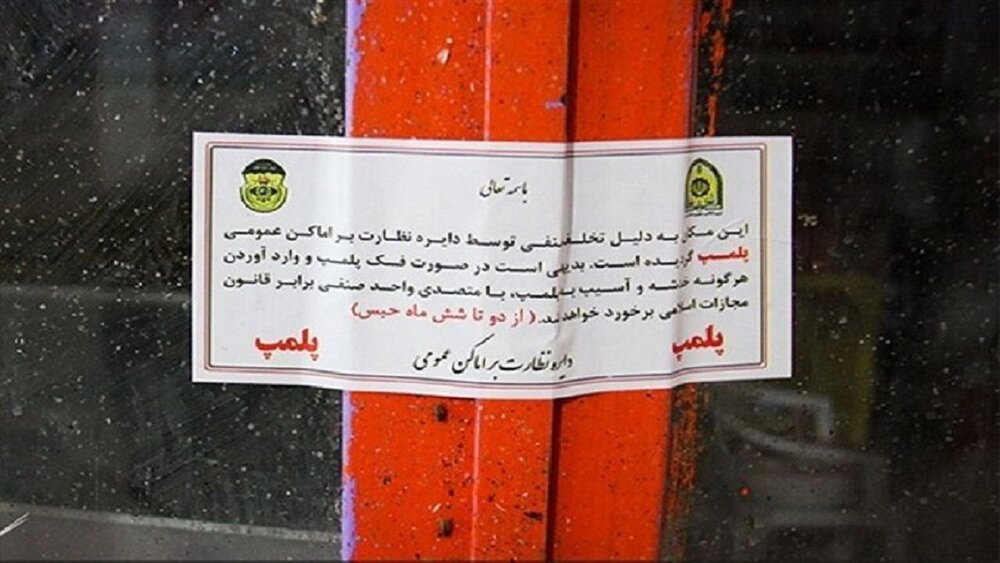 باسمه تعالی
این مکان به دلیل تخلف صنفی توسط دایره نظارت بر اماکن عمومی
پلمپ گردیده است. بدیهی است در صورت فک پلمپ و وارد آوردن
هرگونه خدشه و آسیب به پلمپ، با متصدی واحد صنفی برابر قانون
مجازات اسلامی برخورد خواهد شد. (از دو تا شش ماه حبس)
پلمپ
پلمپ
دایره نظارت بر اماکن عمومی